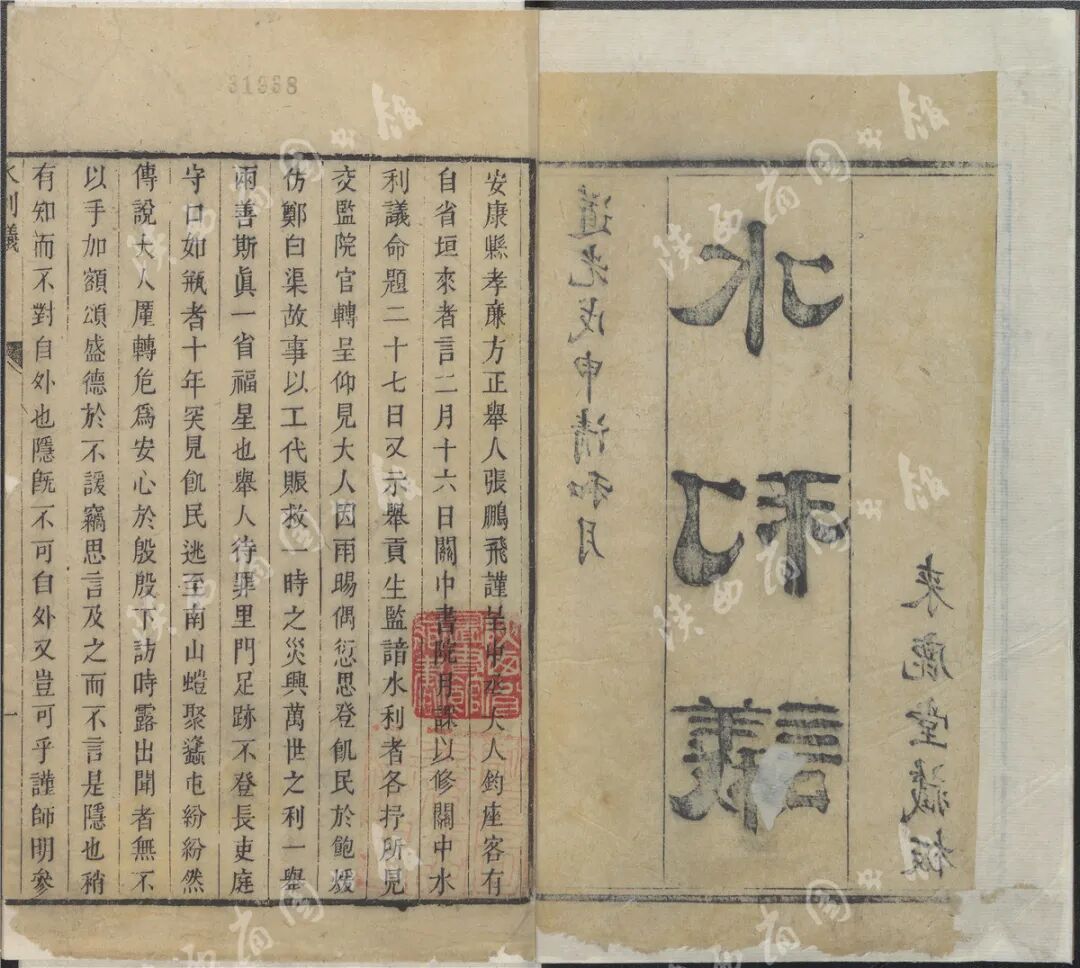 道光戊申清和月
水利議
來鹿堂藏板
安康縣孝廉方正舉人張鵬飛謹呈中丞大人鈞座客有
自省垣來者言二月十六日關中書院月課以修關中水
利議命題二十七日又示舉貢生監諳水利者各抒所見
交監院官轉呈仰見大人因雨暘偶愆思登飢民於飽煖
仿鄭白渠故事以工代賑救一時之災興萬世之利一舉
兩善斯眞一省福星也舉人待罪里門足跡不登長吏庭
守口如瓶者十年突見飢民逃至南山螘聚蠭屯紛紛然
傳說大人厪轉危爲安心於殷殷下訪時露出聞者無不
以手加額頌盛德於不諼竊思言及之而不言是隱也稍
有知而不對自外也隱旣不可自外又豈可乎謹師明參
水利議
一
陕西省图书馆